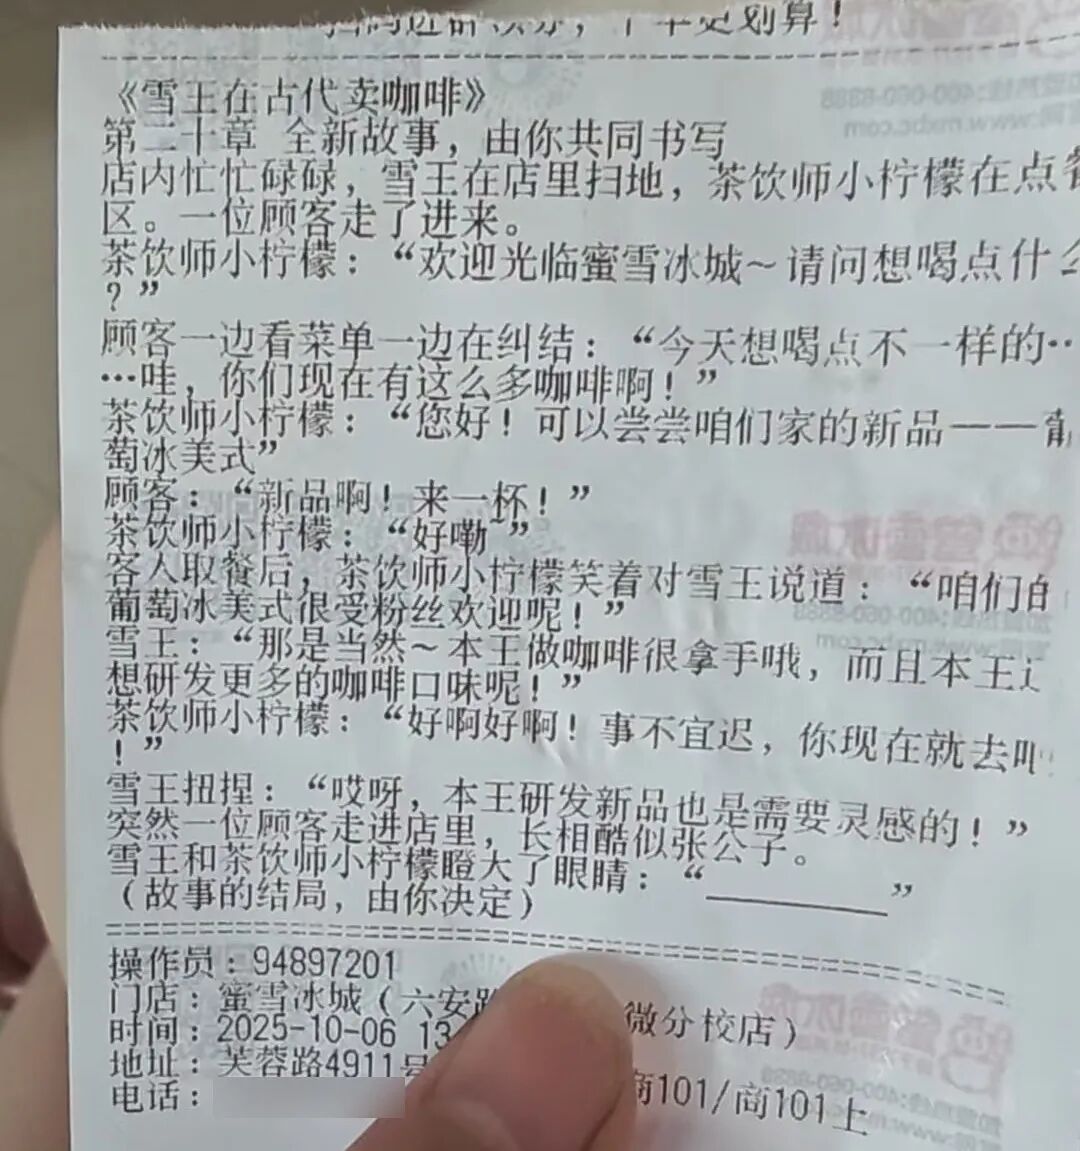 更划算！
《雪王在古代卖咖啡》
第二十章 全新故事，由你共同书写
店内忙忙碌碌，雪王在店里扫地，茶饮师小柠檬在点
区。一位顾客走了进来。
茶饮师小柠檬：“欢迎光临蜜雪冰城～请问想喝点什么
？”
顾客一边看菜单一边在纠结：“今天想喝点不一样的…
…哇，你们现在有这么多咖啡啊！”
茶饮师小柠檬：“您好！可以尝尝咱们家的新品——葡
萄冰美式”
顾客：“新品啊！来一杯！”
茶饮师小柠檬：“好嘞~”
客人取餐后，茶饮师小柠檬笑着对雪王说道：“咱们的
葡萄冰美式很受粉丝欢迎呢！”
雪王：“那是当然～本王做咖啡很拿手哦，而且本王
想研发更多的咖啡口味呢！”
茶饮师小柠檬：“好啊好啊！事不宜迟，你现在就去吧
！”
雪王扭捏：“哎呀，本王研发新品也是需要灵感的！”
突然一位顾客走进店里，长相酷似张公子。
雪王和茶饮师小柠檬瞪大了眼睛：“________”
（故事的结局，由你决定）
操作员：94897201
门店：蜜雪冰城（六安 微分校店）
时间：2025-10-06 13
地址：芙蓉路4911号 商101/商101上
电话：